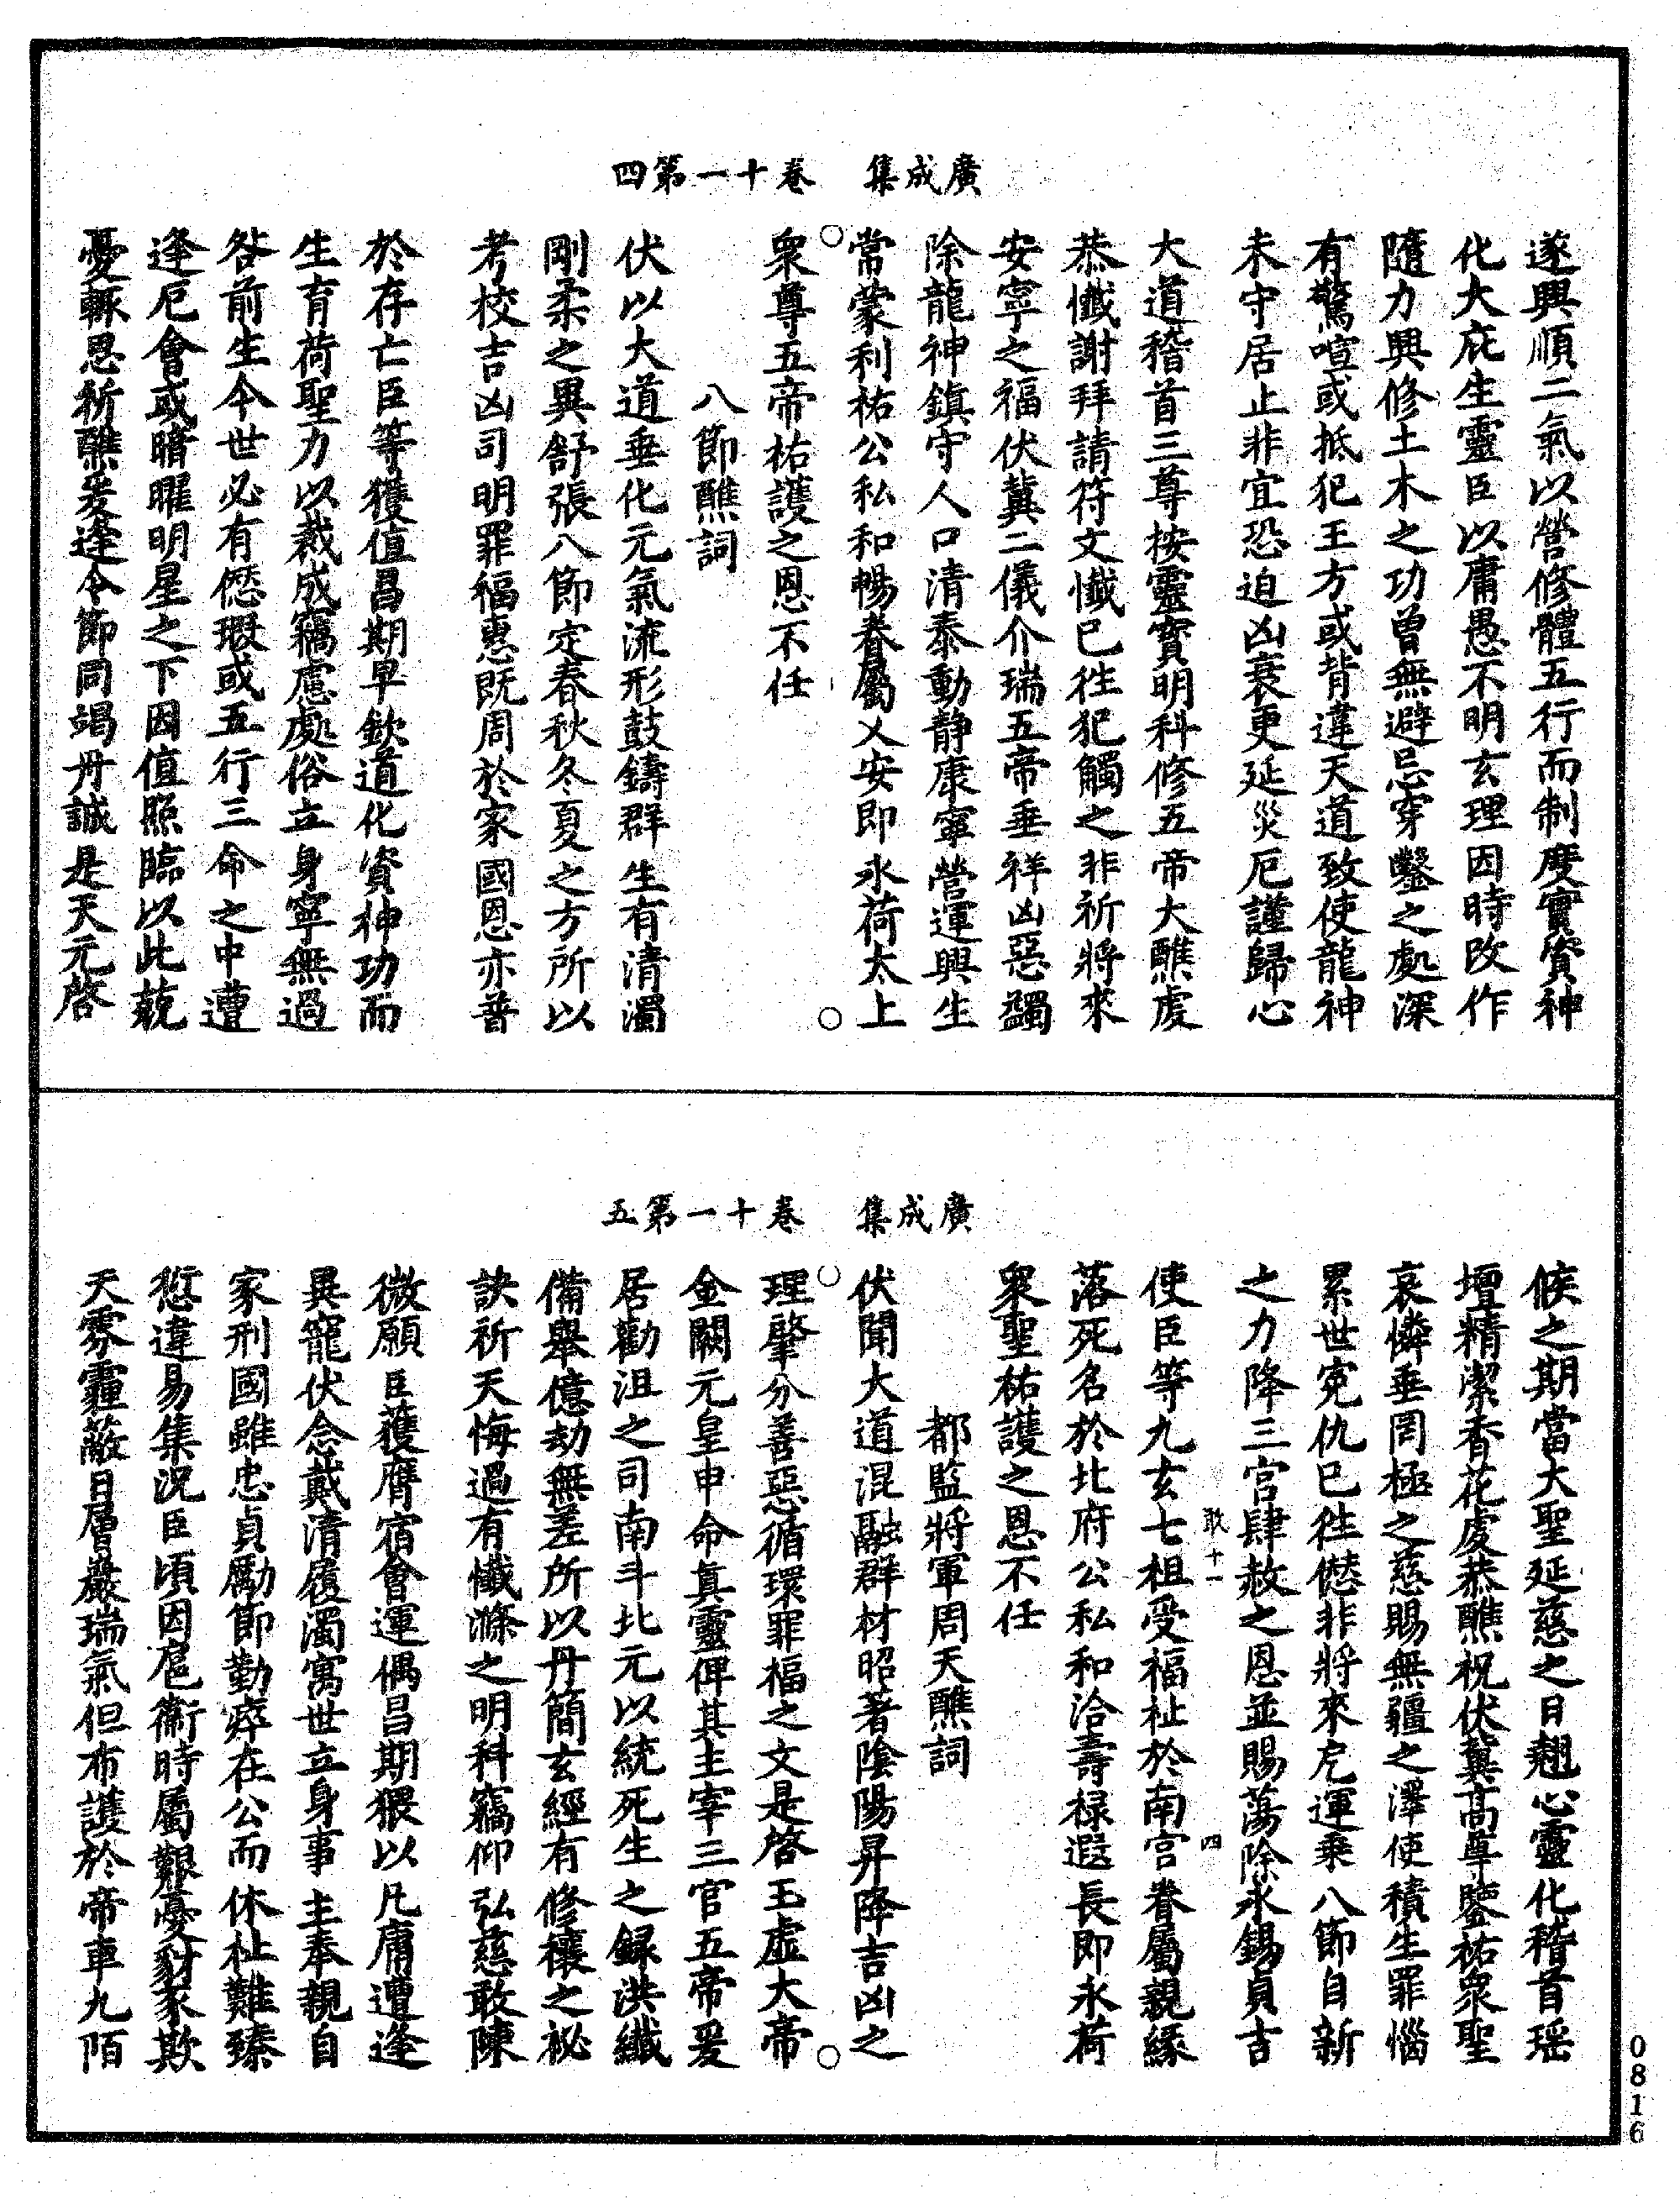 廣成集　卷十一第四
遂興順二氣以營修體五行而制度實資神
化大庇生靈臣以庸愚不明玄理因時改作
隨力興修土木之功曾無避忌穿鑿之處深
有驚喧或抵犯王方或背違天道致使龍神
未守居止非宜恐迫凶衰更延災厄謹歸心
大道稽首三尊按靈寶明科修五帝大醮虔
恭懺謝拜請符文懺已往犯觸之非祈將來
安寧之福伏冀二儀介瑞五帝垂祥凶惡蠲
除龍神鎮守人口清泰動靜康寧營運興生
常蒙利祐公私和暢眷屬乂安即永荷太上
衆尊五帝祐護之恩不任
八節醮詞
伏以大道垂化元氣流形鼓鑄群生有清濁
剛柔之異舒張八節定春秋冬夏之方所以
考校吉凶司明罪福惠既周於家國恩亦普
於存亡臣等獲值昌期早欽道化資神功而
生育荷聖力以裁成竊慮處俗立身寧無過
咎前生今世必有愆瑕或五行三命之中遭
逢厄會或暗曜明星之下因值照臨以此兢
憂輒思祈醮爰逢令節同竭丹誠是天元啓
廣成集　卷十一第五
候之期當大聖延慈之日翹心靈化稽首瑤
壇精潔香花虔恭醮祝伏冀高尊鑒祐衆聖
哀憐垂罔極之慈賜無疆之澤使積生罪惱
累世寃仇已往愆非將來厄運乘八節自新
之力降三宮肆赦之恩並賜蕩除永錫貞吉
敢十一　四
使臣等九玄七祖受福祉於南宮眷屬親緣
落死名於北府公私和洽壽禄遐長即永荷
衆聖祐護之恩不任
都監將軍周天醮詞
伏聞大道混融群材昭著陰陽昇降吉凶之
理肇分善惡循環罪福之文是啓玉虛大帝
金闕元皇申命真靈俾其主宰三官五帝爰
居勸沮之司南斗北元以統死生之録洪纖
備舉億劫無差所以丹簡玄經有修禳之祕
訣祈天悔過有懺滌之明科竊仰弘慈敢陳
微願臣獲膺宿會運偶昌期猥以凡庸遭逢
異寵伏念戴清履濁寓世立身事主奉親自
家刑國雖忠貞勵節勤瘁在公而休祉難臻
愆違易集況臣頃因扈衛時屬艱憂豺豕欺
天雰霾蔽日層巖瑞氣但布護於帝車九陌
0816